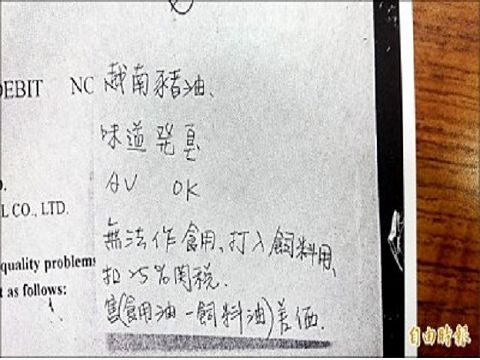 DEBIT NO 越南豬油、
味道発臭
AV OK
L CO., LTD.
無法作食用、打入飼料用、
quality problems
扣25%関税.
as follows:
(食用油-飼料油)差価.
自由時報